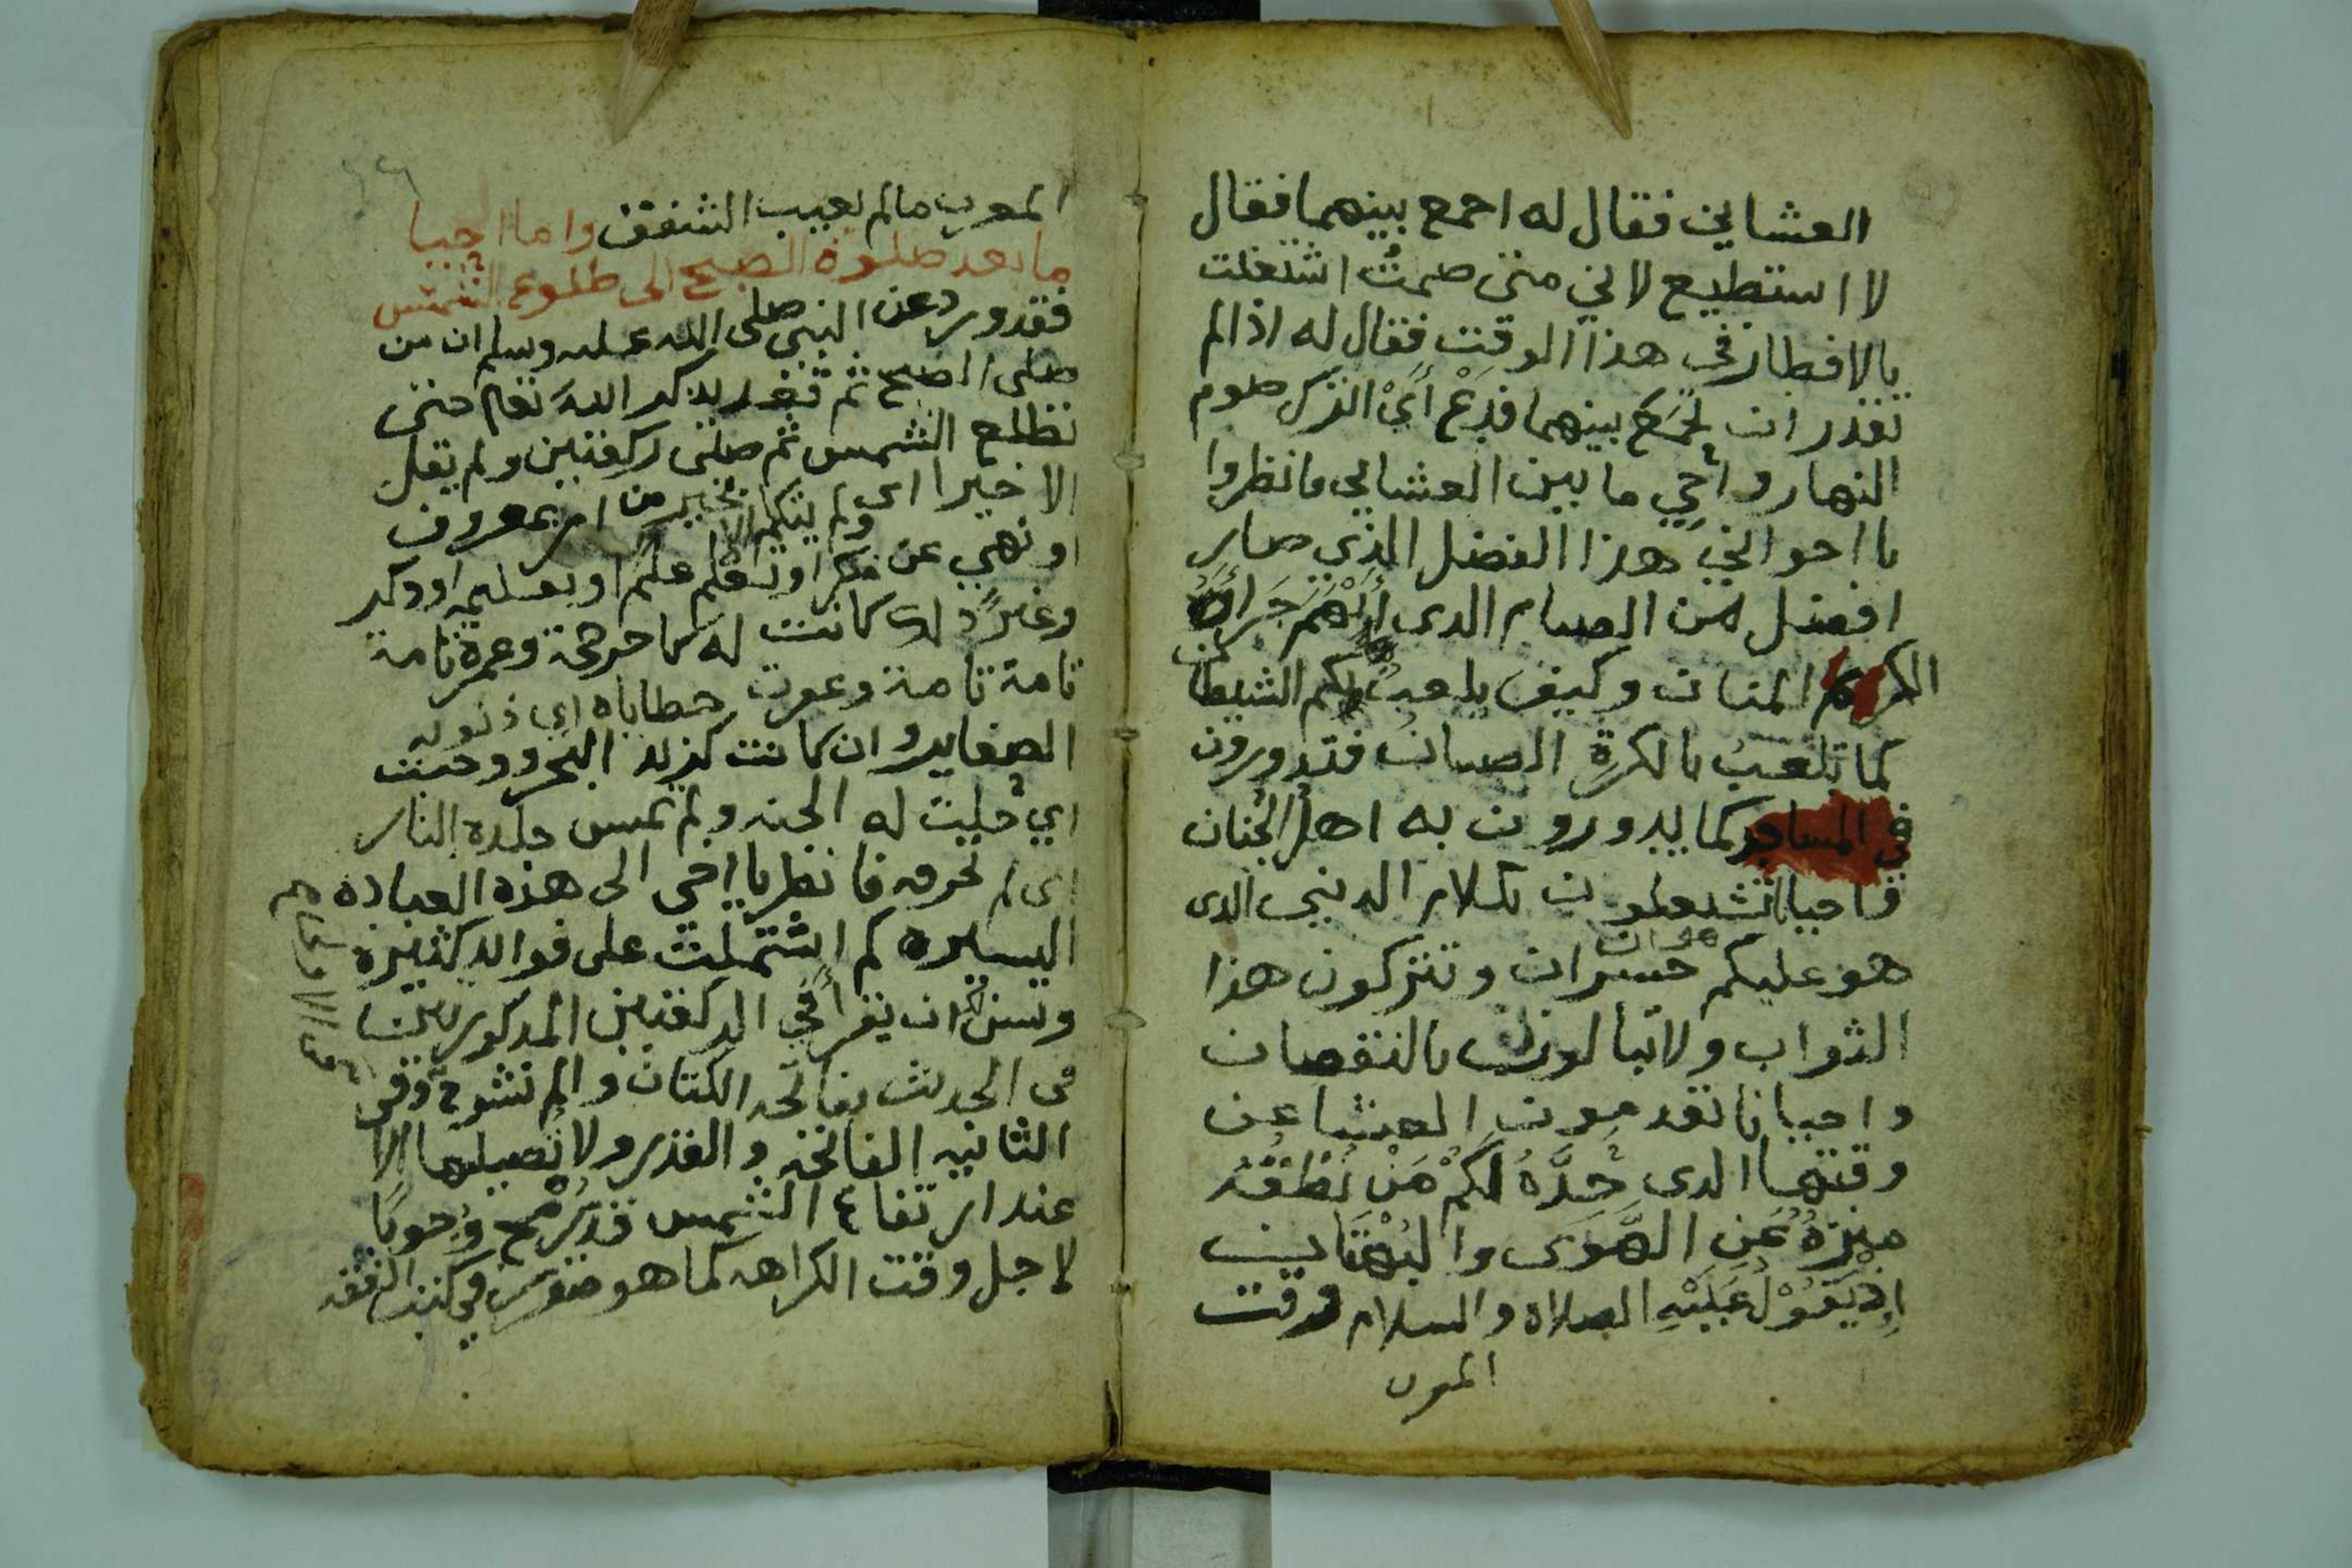 العشاين فقال له اجمع بينهما فقال
لا استطيع لاني متى صمتُ اشتغلت
بالافطار في هذا الوقت فقال له اذا لم
تقدر ان تجمَعَ بينهما فدع أيْ اترك صوم
النهار واحي ما بين العشايي فانظروا
يا اخواني هذا الفضل الذي صار
افضل من الصيام الدى
الكريم المنان وكيف يلعبُ بكم الشيطان
كما تلعبُ بالكرةِ الصبيان فتدورون
في المساجد كما يدورون به اهل الجنان
واحيانا تشتغلون بكلام الدنيى الدى
هو عليكم خسران وتتركون هذا
هوان
الثواب ولا تبالون بالنقصان
واحيانا تقدمون العشا عن
وقتها الدى حدَّهُ لكم مَن نُطْقُهُ
منزهٌ عَنِ الهَوَى والبُهْتَان
إذ يَقُوْلُ عَلَيْهِ الصلاة والسلام وقت
المعرب
المعرب مالم يغيب الشفق واما احيا
ما بعد صلوة الصبح الى طلوع الشمس
فقد ورد عن النبي صلى الله عليه وسلم ان من
صلى الصبح ثم قعد يذكر الله تعالى حتى
تطلع الشمس ثم صلى ركعتين ولم يقل
الا خيرا اى ولم يتكلم الا بخير من امر بمعروف
او نهي عن منكر او تعلم علم او تعليمه او ذكر
وغير ذلك كانت له كاجر حجة وعمرة تامة
تامة تامة وغفرت خطاياه اي ذنوبه
الصغاير وان كانت كزبد البحر ووجبت
اي جلبت له الجنه ولم تمس جلده النار
اى لم تحرقه فانظر يا اخي الى هذه العباده
اليسيره كم اشتملت على فوائد كثيرة
ويسن ان يقرا في الركعتين المدكورتين
في الحديث بفاتحه الكتاب والم نشرح وفي
الثانيه الفاتحه والقدر ولا تصليها الا
عند ارتفاع الشمس قدر رُمْح وُجوبًا
لاجل وقت الكراهه كما هو مقرر في كتب الفقه